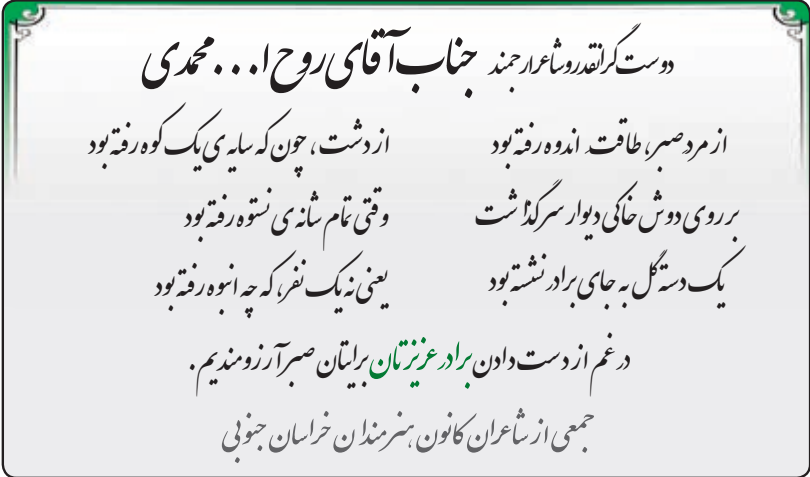 دوست گرانقدر و شاعر ارجمند جناب آقای روح ا... محمدی
از مرد صبر، طاقت اندوه رفته بود از دشت، چون که سایه ی یک کوه رفته بود
بر روی دوش خاکی دیوار سر گذاشت وقتی تمام شانه ی نستوه رفته بود
یک دسته گل به جای برادر نشسته بود یعنی نه یک نفر، که چه انبوه رفته بود
در غم از دست دادن برادر عزیزتان برایتان صبر آرزومندیم.
جمعی از شاعران کانون هنرمندان خراسان جنوبی